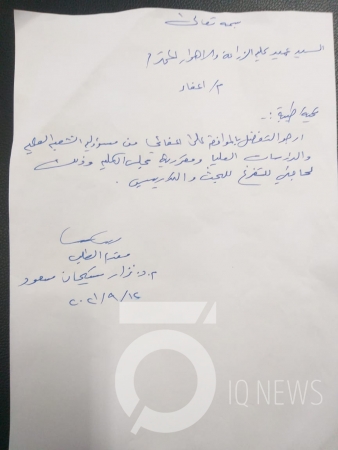 بسمه تعالى
السيد عميد كلية الزراعة والاهوار المحترم
م/ اعفاء
تحية طيبة :-
ارجو التفضل بالموافقة على اعفائي من مسؤولية الشعبة العلمية
والدراسات العليا ومقررية مجلس الكلية وذلك
لحاجتي للتفرغ للبحث و التدريس .
مقدم الطلب
م.د. نزار سبكان سعود
٢٠٢١/٩/١٢
IQ NEWS